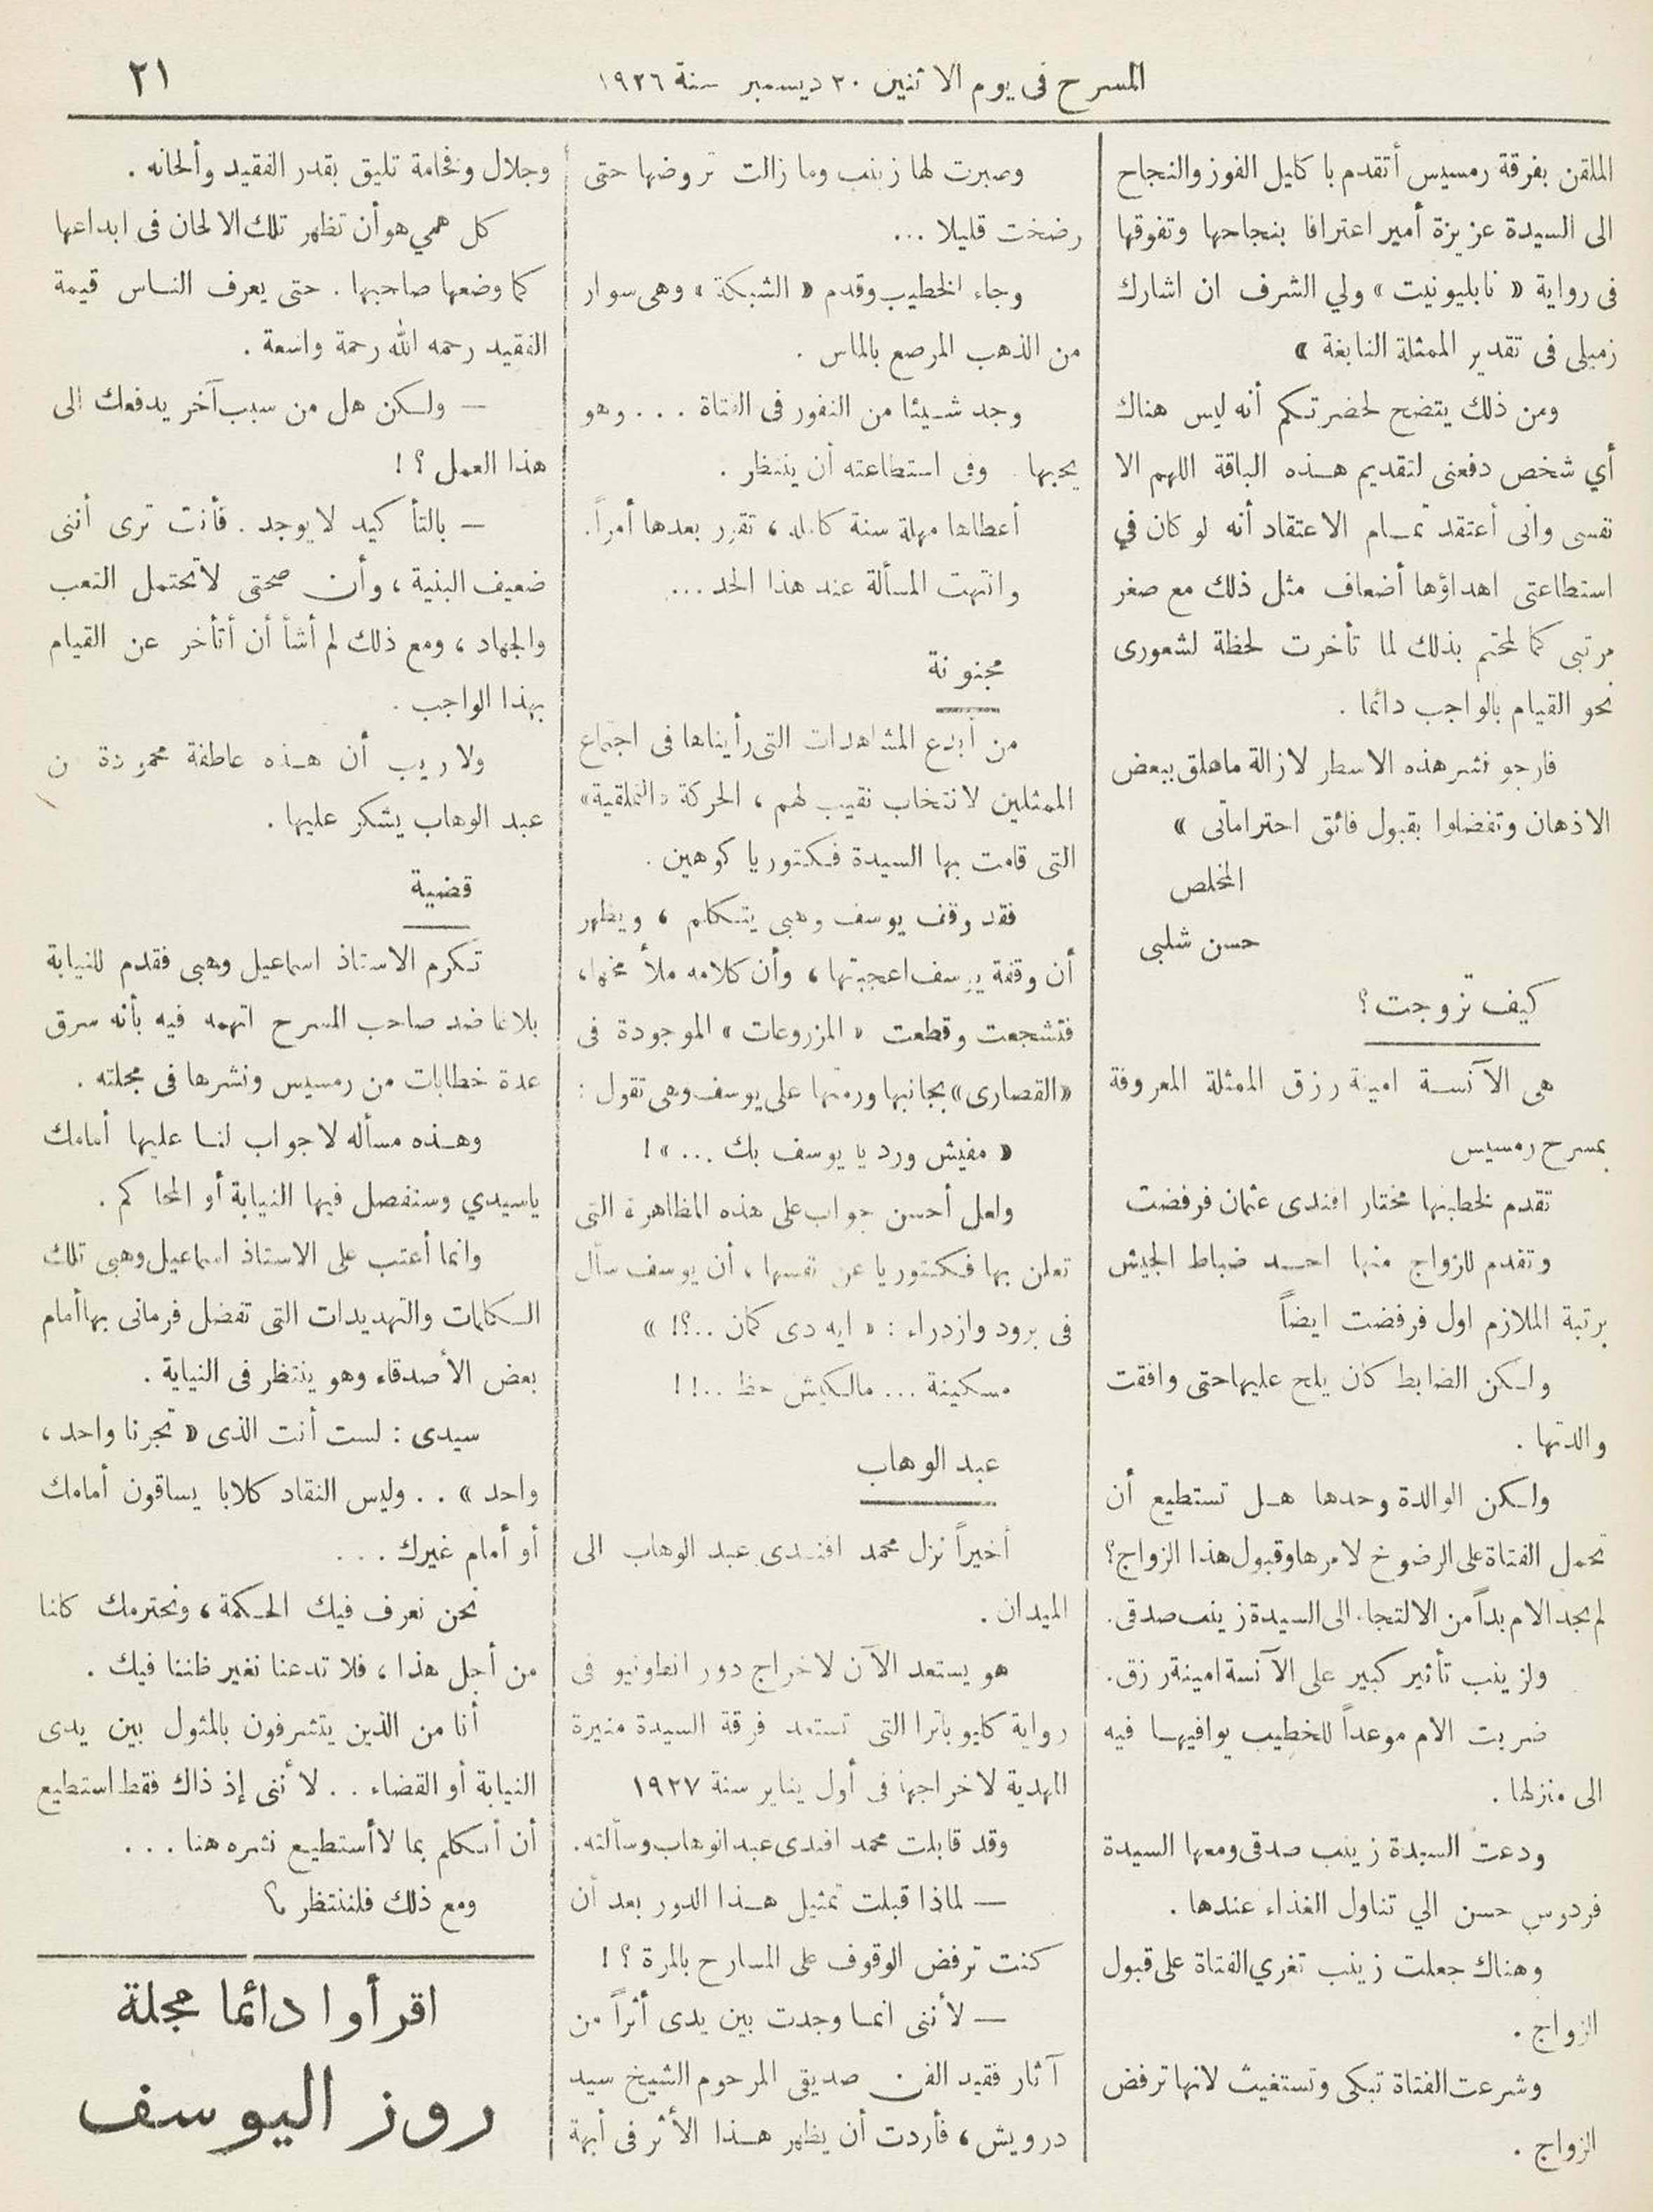 المسرح فى يوم الاثنين ٢٠ ديسمبر سنة ١٩٢٦
٢١
الملقن بفرقة رمسيس أتقدم با كاليل الفوز والنجاح
الى السيدة عزيزة أمير اعترافا بنجاحها وتفوقها
فى رواية « نابليونيت » ولي الشرف ان اشارك
زميلى فى تقدير الممثلة النابغة »
ومن ذلك يتضح لحضرتكم أنه ليس هناك
أي شخص دفعنى لتقديم هذه الباقة اللهم الا
نفسى وانى أعتقد تمام الاعتقاد أنه لو كان في
استطاعتى اهداؤها أضعاف مثل ذلك مع صغر
مرتبى كما لمحتم بذلك لما تأخرت لحظة لشعورى
نحو القيام بالواجب دائما .
فارجو نشر هذه الاسطر لازالة ماعلق ببعض
الاذهان وتفضلوا بقبول فائق احتراماتى »
المخلص
حسن شلبى
كيف تزوجت ؟
هى الآنسة امينة رزق الممثلة المعروفة
بمسرح رمسيس
تقدم لخطبتها مختار افندى عثمان فرفضت
وتقدم للزواج منها احد ضباط الجيش
برتبة الملازم اول فرفضت ايضاً
ولكن الضابط كان يلح عليها حتى وافقت
والدتها .
ولكن الوالدة وحدها هل تستطيع أن
تحمل الفتاة على الرضوخ لامرها وقبول هذا الزواج؟
لم يجد الام بداً من الالتجاء الى السيدة زينب صدقى.
ولزينب تأثير كبير على الآنسة امينة رزق.
ضربت الام موعداً للخطيب يوافيها فيه
الى منزلها .
ودعت السيدة زينب صدقى ومعها السيدة
فردوس حسن الي تناول الغذاء عندها .
وهناك جعلت زينب تغري الفتاة على قبول
الزواج .
وشرعت الفتاة تبكى وتستغيث لانها ترفض
الزواج .
وصبرت لها زينب وما زالت تروضها حتى
رضخت قليلا ...
وجاء الخطيب وقدم « الشبكة » وهى سوار
من الذهب المرصع بالماس .
وجد شيئا من النفور فى الفتاة . . . وهو
يحبها وفى استطاعته أن ينتظر .
أعطاها مهلة سنة كاملة ، تقرر بعدها أمراً.
وانتهت المسألة عند هذا الحد ...
مجنونة
من أبدع المشاهدات التى رأيناها فى اجتماع
الممثلين لانتخاب نقيب لهم ، الحركة «التملقية»
التى قامت بها السيدة فكتوريا كوهين .
فقد وقف يوسف وهبى يتكلم ، ويظهر
أن وقفة يوسف اعجبتها ، وأن كلامه ملأ مخها،
فتشجعت وقطعت « المزروعات » الموجودة فى
«القصارى» بجانبها ورمتها على يوسف وهى تقول :
« مفيش ورد يا يوسف بك ... » !
ولعل أحسن جواب على هذه المظاهرة التى
تعلن بها فكتوريا عن نفسها ، أن يوسف سأل
فى برود وازدراء : « ايه دى كمان ..؟! »
مسكينة ... مالكيش حظ ..! !
عبد الوهاب
أخيراً نزل محمد افندى عبد الوهاب الى
الميدان .
هو يستعد الآن لاخراج دور انطونيو فى
رواية كليوباترا التى تستعد فرقة السيدة منيرة
المهدية لاخراجها فى أول يناير سنة ١٩٢٧
وقد قابلت محمد افندى عبد الوهاب وسألته.
— لماذا قبلت تمثيل هذا الدور بعد أن
كنت ترفض الوقوف على المسارح بالمرة ؟ !
— لأننى انما وجدت بين يدى أثراً من
آثار فقيد الفن صديقى المرحوم الشيخ سيد
درويش ، فأردت أن يظهر هذا الأثر فى أبهة
وجلال وفخامة تليق بقدر الفقيد وألحانه .
كل همي هو أن تظهر تلك الالحان فى ابداعها
كما وضعها صاحبها . حتى يعرف الناس قيمة
الفقيد رحمه الله رحمة واسعة .
— ولكن هل من سبب آخر يدفعك الى
هذا العمل ؟ !
— بالتأ كيد لا يوجد . فأنت ترى أننى
ضعيف البنية ، وأن صحتى لا تحتمل التعب
والجهاد ، ومع ذلك لم أشأ أن أتأخر عن القيام
بهذا الواجب .
ولا ريب أن هذه عاطفة محمودة ن
عبد الوهاب يشكر عليها .
قضية
تكرم الاستاذ اسماعيل وهبى فقدم للنيابة
بلاغا ضد صاحب المسرح اتهمه فيه بأنه سرق
عدة خطابات من رمسيس ونشرها فى مجلته .
وهذه مسأله لا جواب لنا عليها أمامك
ياسيدي وستفصل فيها النيابة أو المحاكم .
وانما أعتب على الاستاذ اسماعيل وهبى تلك
الكلمات والتهديدات التى تفضل فرمانى بها أمام
بعض الأصدقاء وهو ينتظر فى النيابة .
سيدى : لست أنت الذى « تجرنا واحد ،
واحد » . . وليس النقاد كلابا يساقون أمامك
أو أمام غيرك . . .
نحن نعرف فيك الحكمة ، ونحترمك كلنا
من أجل هذا ، فلا تدعنا نغير ظننا فيك .
أنا من الذين يتشرفون بالمثول بين يدى
النيابة أو القضاء . . لأننى إذ ذاك فقط استطيع
أن أتكلم بما لا أستطيع نشره هنا . . .
ومع ذلك فلننتظر ؟
اقرأوا دائما مجلة
روز اليوسف